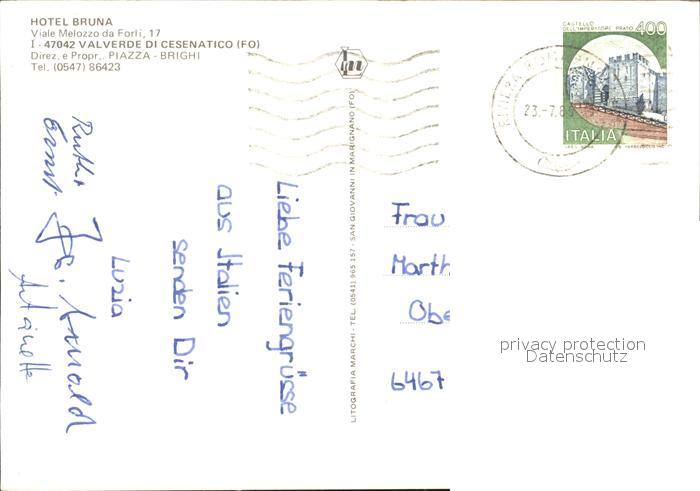 HOTEL BRUNA
Viale Melozzo da Forlì, 17
I - 47042 VALVERDE DI CESENATICO (FO)
Direz. e Propr.. PIAZZA - BRIGHI
Tel. (0547) 86423
CASTELLO
DELL'IMPERATORE PRATO 400
23.-7.8
ITALIA
LITOGRAFIA MARCHI - TEL. (0541) 965 157 - SAN GIOVANNI IN MARIGNANO (FO)
Liebe Feriengrüsse
aus Italien
senden Dir
Luzia
Ruth +
Ernst
Arnold
Antoinette
Frau
Marth
Obe
6467
privacy protection
Datenschutz